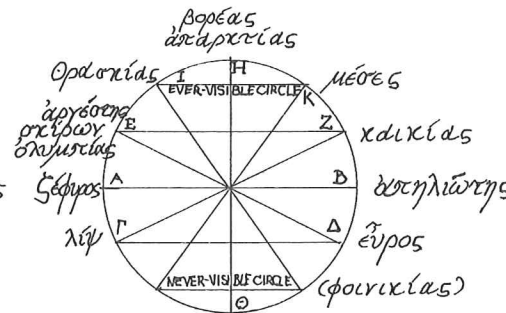 βορέας
ἀπαρκτίας
θρασκίας I H μέσης
EVER-VISIBLE CIRCLE K
ἀργέστης
σκίρων E Z καικίας
ὀλυμπίας
ς ζέφυρος A B ἀπηλιώτης
λίψ Γ Δ εὖρος
NEVER-VISIBLE CIRCLE (φοινικίας)
Θ